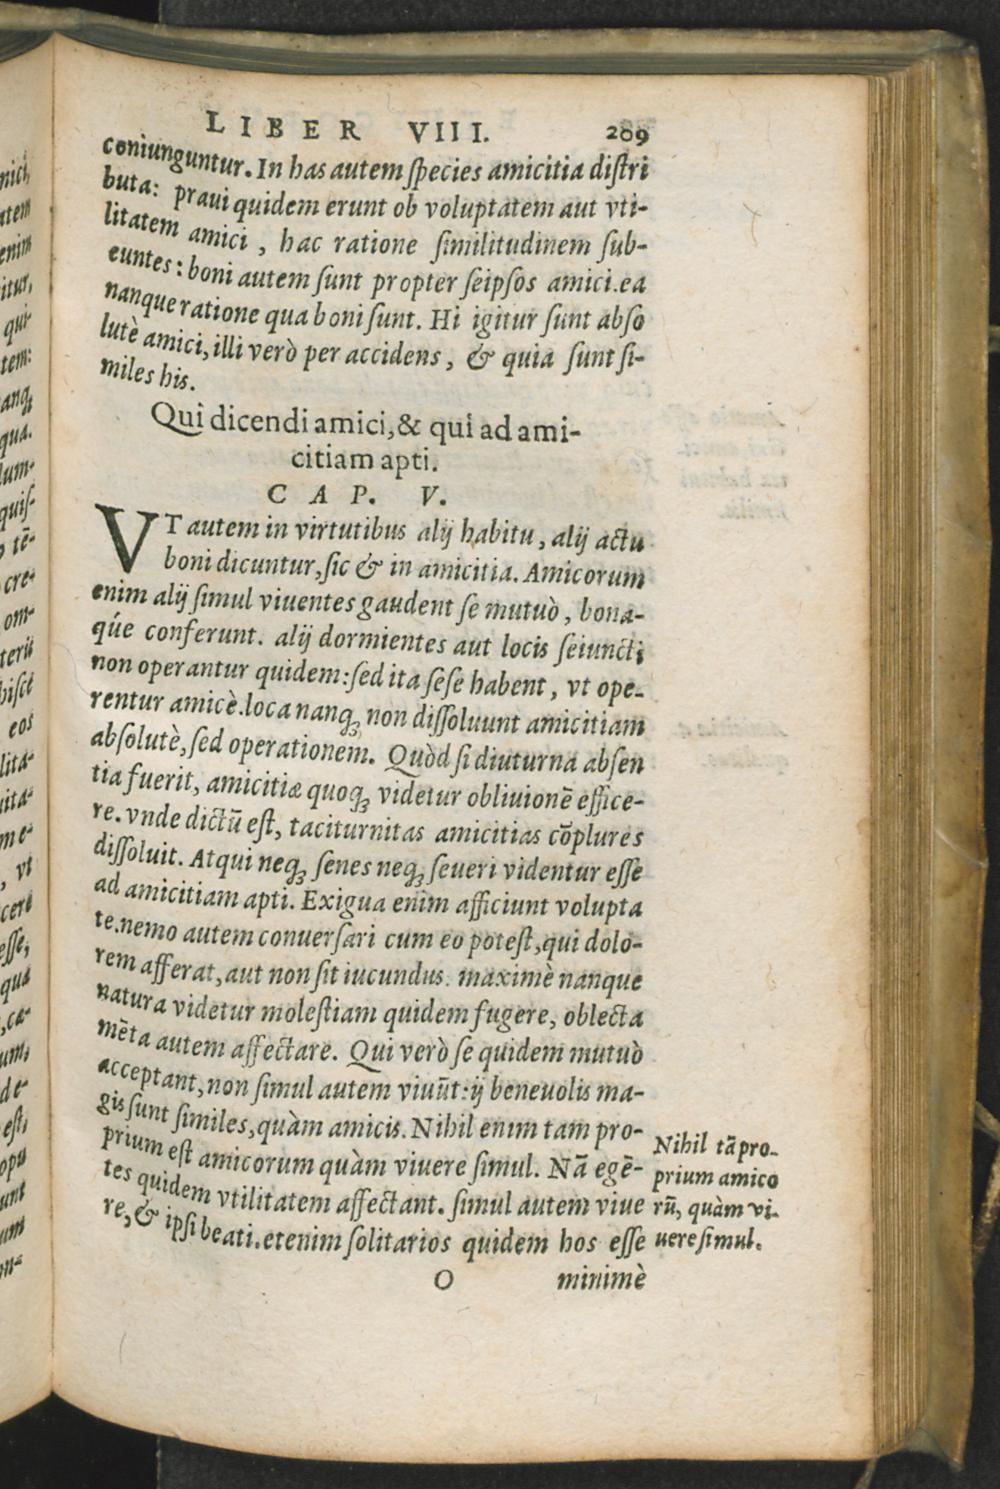 LIBER VIII. 209
coniunguntur. In has autem species amicitia distri
buta: praui quidem erunt ob voluptatem aut vti-
litatem amici, hac ratione similitudinem sub-
euntes: boni autem sunt propter seipsos amici. ea
nanque ratione qua boni sunt. Hi igitur sunt abso
lutè amici, illi verò per accidens, & quia sunt si-
miles his.
Qui dicendi amici, & qui ad ami-
citiam apti.
CAP. V.
VT autem in virtutibus alij habitu, alij actu
boni dicuntur, sic & in amicitia. Amicorum
enim alij simul viuentes gaudent se mutuò, bona-
qúe conferunt. alij dormientes aut locis seiuncti
non operantur quidem: sed ita sese habent, vt ope-
rentur amicè. loca nanq; non dissoluunt amicitiam
absolutè, sed operationem. Quòd si diuturna absen
tia fuerit, amicitiæ quoq; videtur obliuionē effice-
re. vnde dictū est, taciturnitas amicitias cōplures
dissoluit. Atqui neq; senes neq; seueri videntur esse
ad amicitiam apti. Exigua enim afficiunt volupta
te. nemo autem conuersari cum eo potest, qui dolo-
rem afferat, aut non sit iucundus. maximè nanque
natura videtur molestiam quidem fugere, oblecta
mēta autem affectare. Qui verò se quidem mutuò
acceptant, non simul autem viuūt: ij beneuolis ma-
gis sunt similes, quàm amicis. Nihil enim tam pro-
prium est amicorum quàm viuere simul. Nā egē-
tes quidem vtilitatem affectant. simul autem viue
re, & ipsi beati. etenim solitarios quidem hos esse
O minimè
Nihil tā pro-
prium amico
rū, quàm vi-
uere simul.
nici,
atem
enim
itur,
qui-
tem:
anq;
qua.
lum-
quis-
tē-
cre-
om-
eos
lita-
me-
, vt
cere
esse,
qua
um,
de-
est,
unt